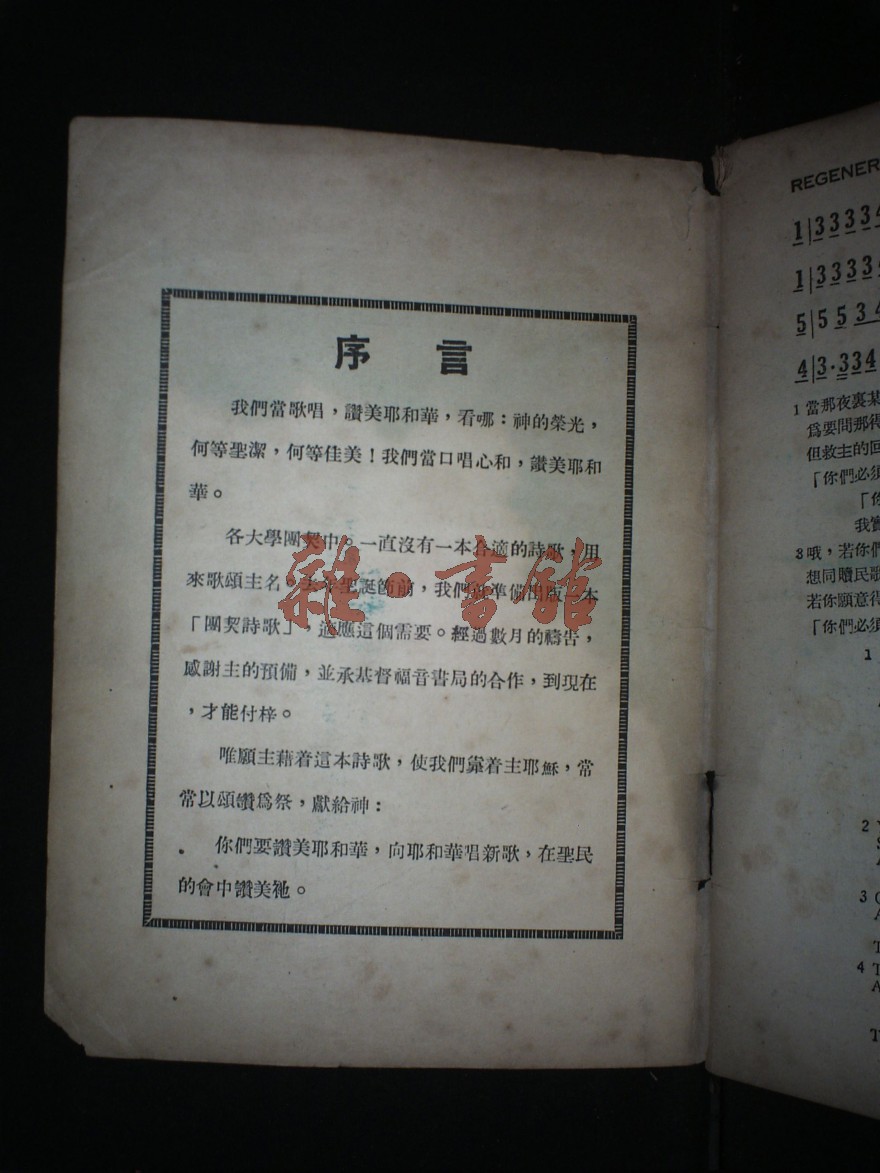 序言
我們當歌唱，讚美耶和華，看哪：神的榮光，
何等聖潔，何等佳美！我們當口唱心和，讚美耶和
華。
各大學團契中。一直沒有一本合適的詩歌，用
來歌頌主名。去年聖誕節前，我們就準備出版一本
「團契詩歌」，適應這個需要。經過數月的禱告，
感謝主的預備，並承基督福音書局的合作，到現在
，才能付梓。
唯願主藉着這本詩歌，使我們靠着主耶穌，常
常以頌讚爲祭，獻給神：
你們要讚美耶和華，向耶和華唱新歌，在聖民
的會中讚美祂。
雜·書館
REGENER
1|3 3 3 3 4
1|3 3 3 3
5|5 5 3 4
4|3·3 3 4
1 當那夜裏某
爲要問那得
但救主的回
「你們必須
「你
我實
3 哦，若你們
想同贖民歌
若你願意得
「你們必須
1
2
3
4 T
A